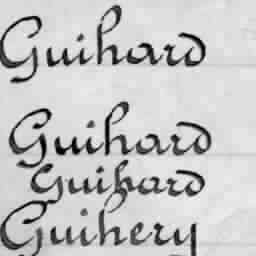 Guihard
Guihard
Guihard
Guihery